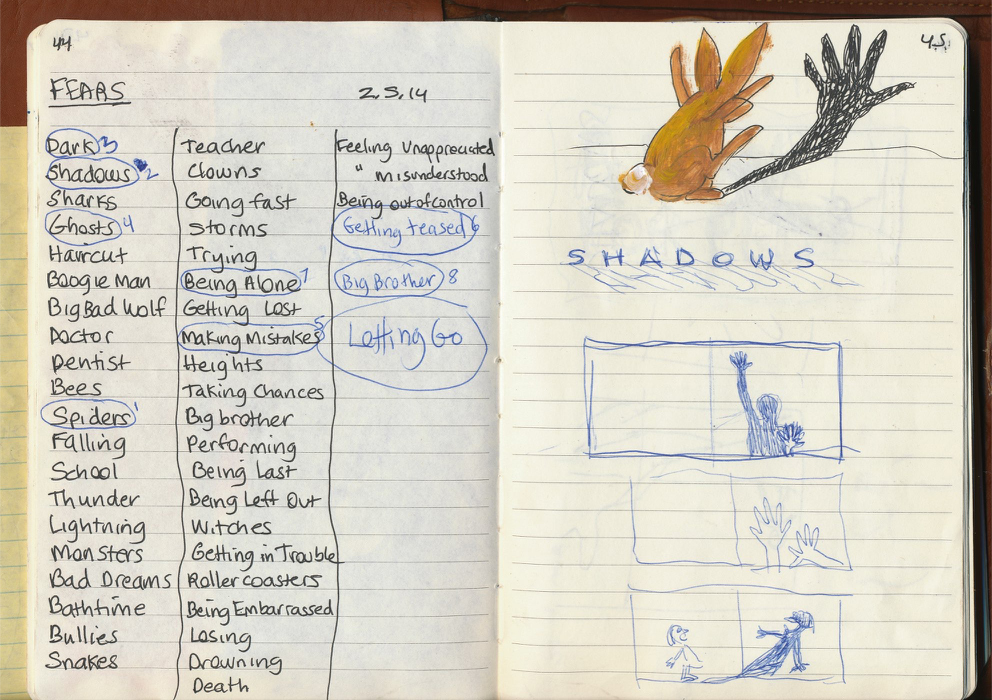 44
FEARS
2.5.14
Dark 3
Shadows 2
Sharks
Ghosts 4
Haircut
Boogie Man
Big Bad Wolf
Doctor
Dentist
Bees
Spiders 1
Falling
School
Thunder
Lightning
Monsters
Bad Dreams
Bathtime
Bullies
Snakes
Teacher
Clowns
Going fast
Storms
Trying
Being Alone 7
Getting Lost
Making Mistakes 5
Heights
Taking Chances
Big brother
Performing
Being Last
Being Left Out
Witches
Getting in Trouble
Roller coasters
Being Embarrassed
Losing
Drowning
Death
Feeling Unappreciated
" misunderstood
Being out of control
Getting teased 6
Big Brother 8
Letting Go
45
SHADOWS